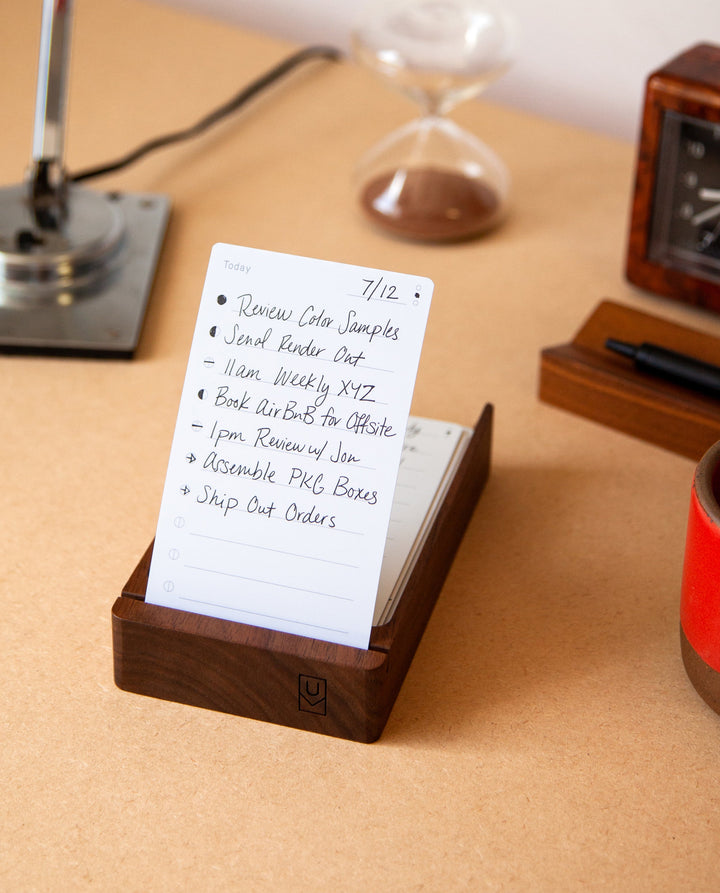 Today
7/12
Review Color Samples
Send Render Out
11am Weekly XYZ
Book AirBnB for Offsite
1pm Review w/ Jon
Assemble PKG Boxes
Ship Out Orders